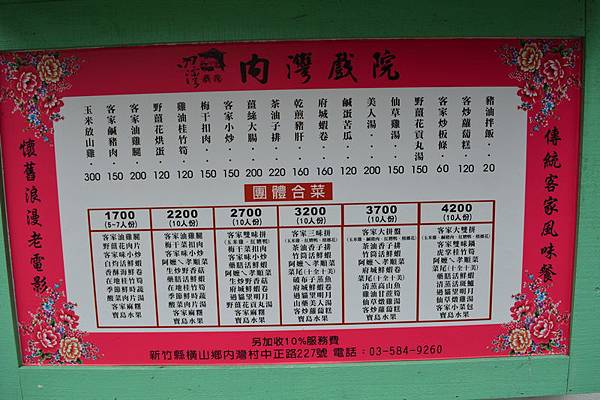 內灣戲院
傳統客家風味餐
懷舊浪漫老電影
豬油拌飯 20
客炒蘿蔔糕 120
客家炒板條 60
野薑花貢丸湯 150
仙草雞湯 200
美人湯 200
鹹蛋苦瓜 120
府城蝦卷 150
乾煎豬肝 200
茶油子排 220
薑絲大腸 200
客家小炒 150
梅干扣肉 150
雞油桂竹筍 120
野薑花烘蛋 120
客家油雞腿 150
客家鹹豬肉 150
玉米放山雞 300
團體合菜
1700
(5~7人份)
客家油雞腿
野薑花肉片
客家味小炒
白灼活鮮蝦
香酥海鮮卷
在地桂竹筍
季節鮮時蔬
酸菜肉片湯
客家麻糬
寶島水果
2200
(10人份)
客家油雞腿
梅干菜扣肉
客家味小炒
阿嬤ㄟ孝順菜
藥膳活鮮蝦
府城鮮蝦卷
在地桂竹筍
季節鮮時蔬
酸菜肉片湯
客家麻糬
寶島水果
2700
(10人份)
客家雙味拼
梅干菜扣肉
客家味小炒
阿嬤ㄟ孝順菜
生炒野香菇
藥膳活鮮蝦
府城鮮蝦卷
過貓望明月
野薑花貢丸湯
客家麻糬
寶島水果
3200
(10人份)
客家三味拼
茶油香子排
竹筒活鮮蝦
阿嬤ㄟ孝順菜
菜尾(十全十美)
生炒野香菇
破布子蒸魚
府城鮮蝦卷
過貓望明月
山藥美人湯
客炒蘿蔔糕
寶島水果
3700
(10人份)
客家大拼盤
茶油香子排
竹筒活鮮蝦
阿嬤ㄟ孝順菜
府城鮮蝦卷
菜尾(十全十美)
清蒸高山魚
雞油桂花筍
仙草燉雞湯
客炒蘿蔔糕
寶島水果
4200
(10人份)
客家大雙拼
客家雙味鍋
虎掌桂竹筍
竹筒活鮮蝦
阿嬤ㄟ孝順菜
菜尾(十全十美)
清蒸活斑魚
過貓望明月
仙草燉雞湯
客家小菜包
寶島水果
另加收10%服務費
新竹縣橫山鄉內灣村中正路227號 電話：03-584-9260